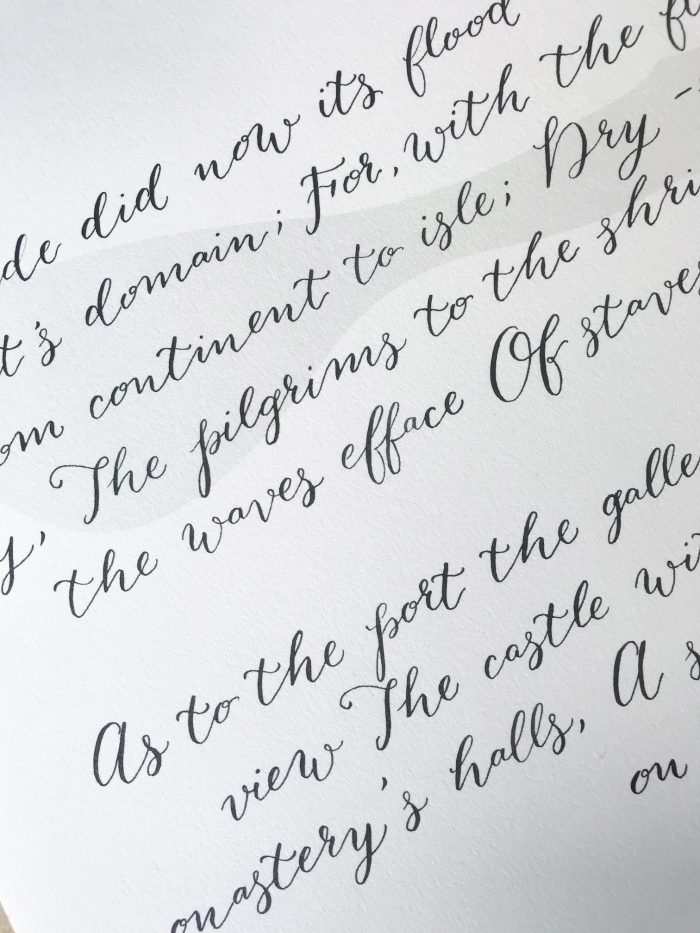 de did now its flood
t's domain; For, with the fl
om continent to isle; Dry -
y, The pilgrims to the shri
the waves efface Of staves
As to the port the galle
view The castle wi
onastery's halls, A s
on